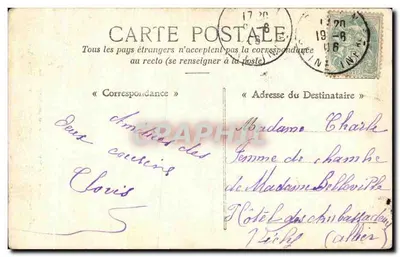 CARTE POSTALE
Tous les pays étrangers n'acceptent pas la correspondance
au recto (se renseigner à la poste)
« Correspondance »
« Adresse du Destinataire »
Amitiés des
deux cousins
Clovis
Madame Charle
femme de chambre
de Madame Belleville
Hôtel des Ambassadeurs
Vichy (allier)
17 20
19 - 8
06